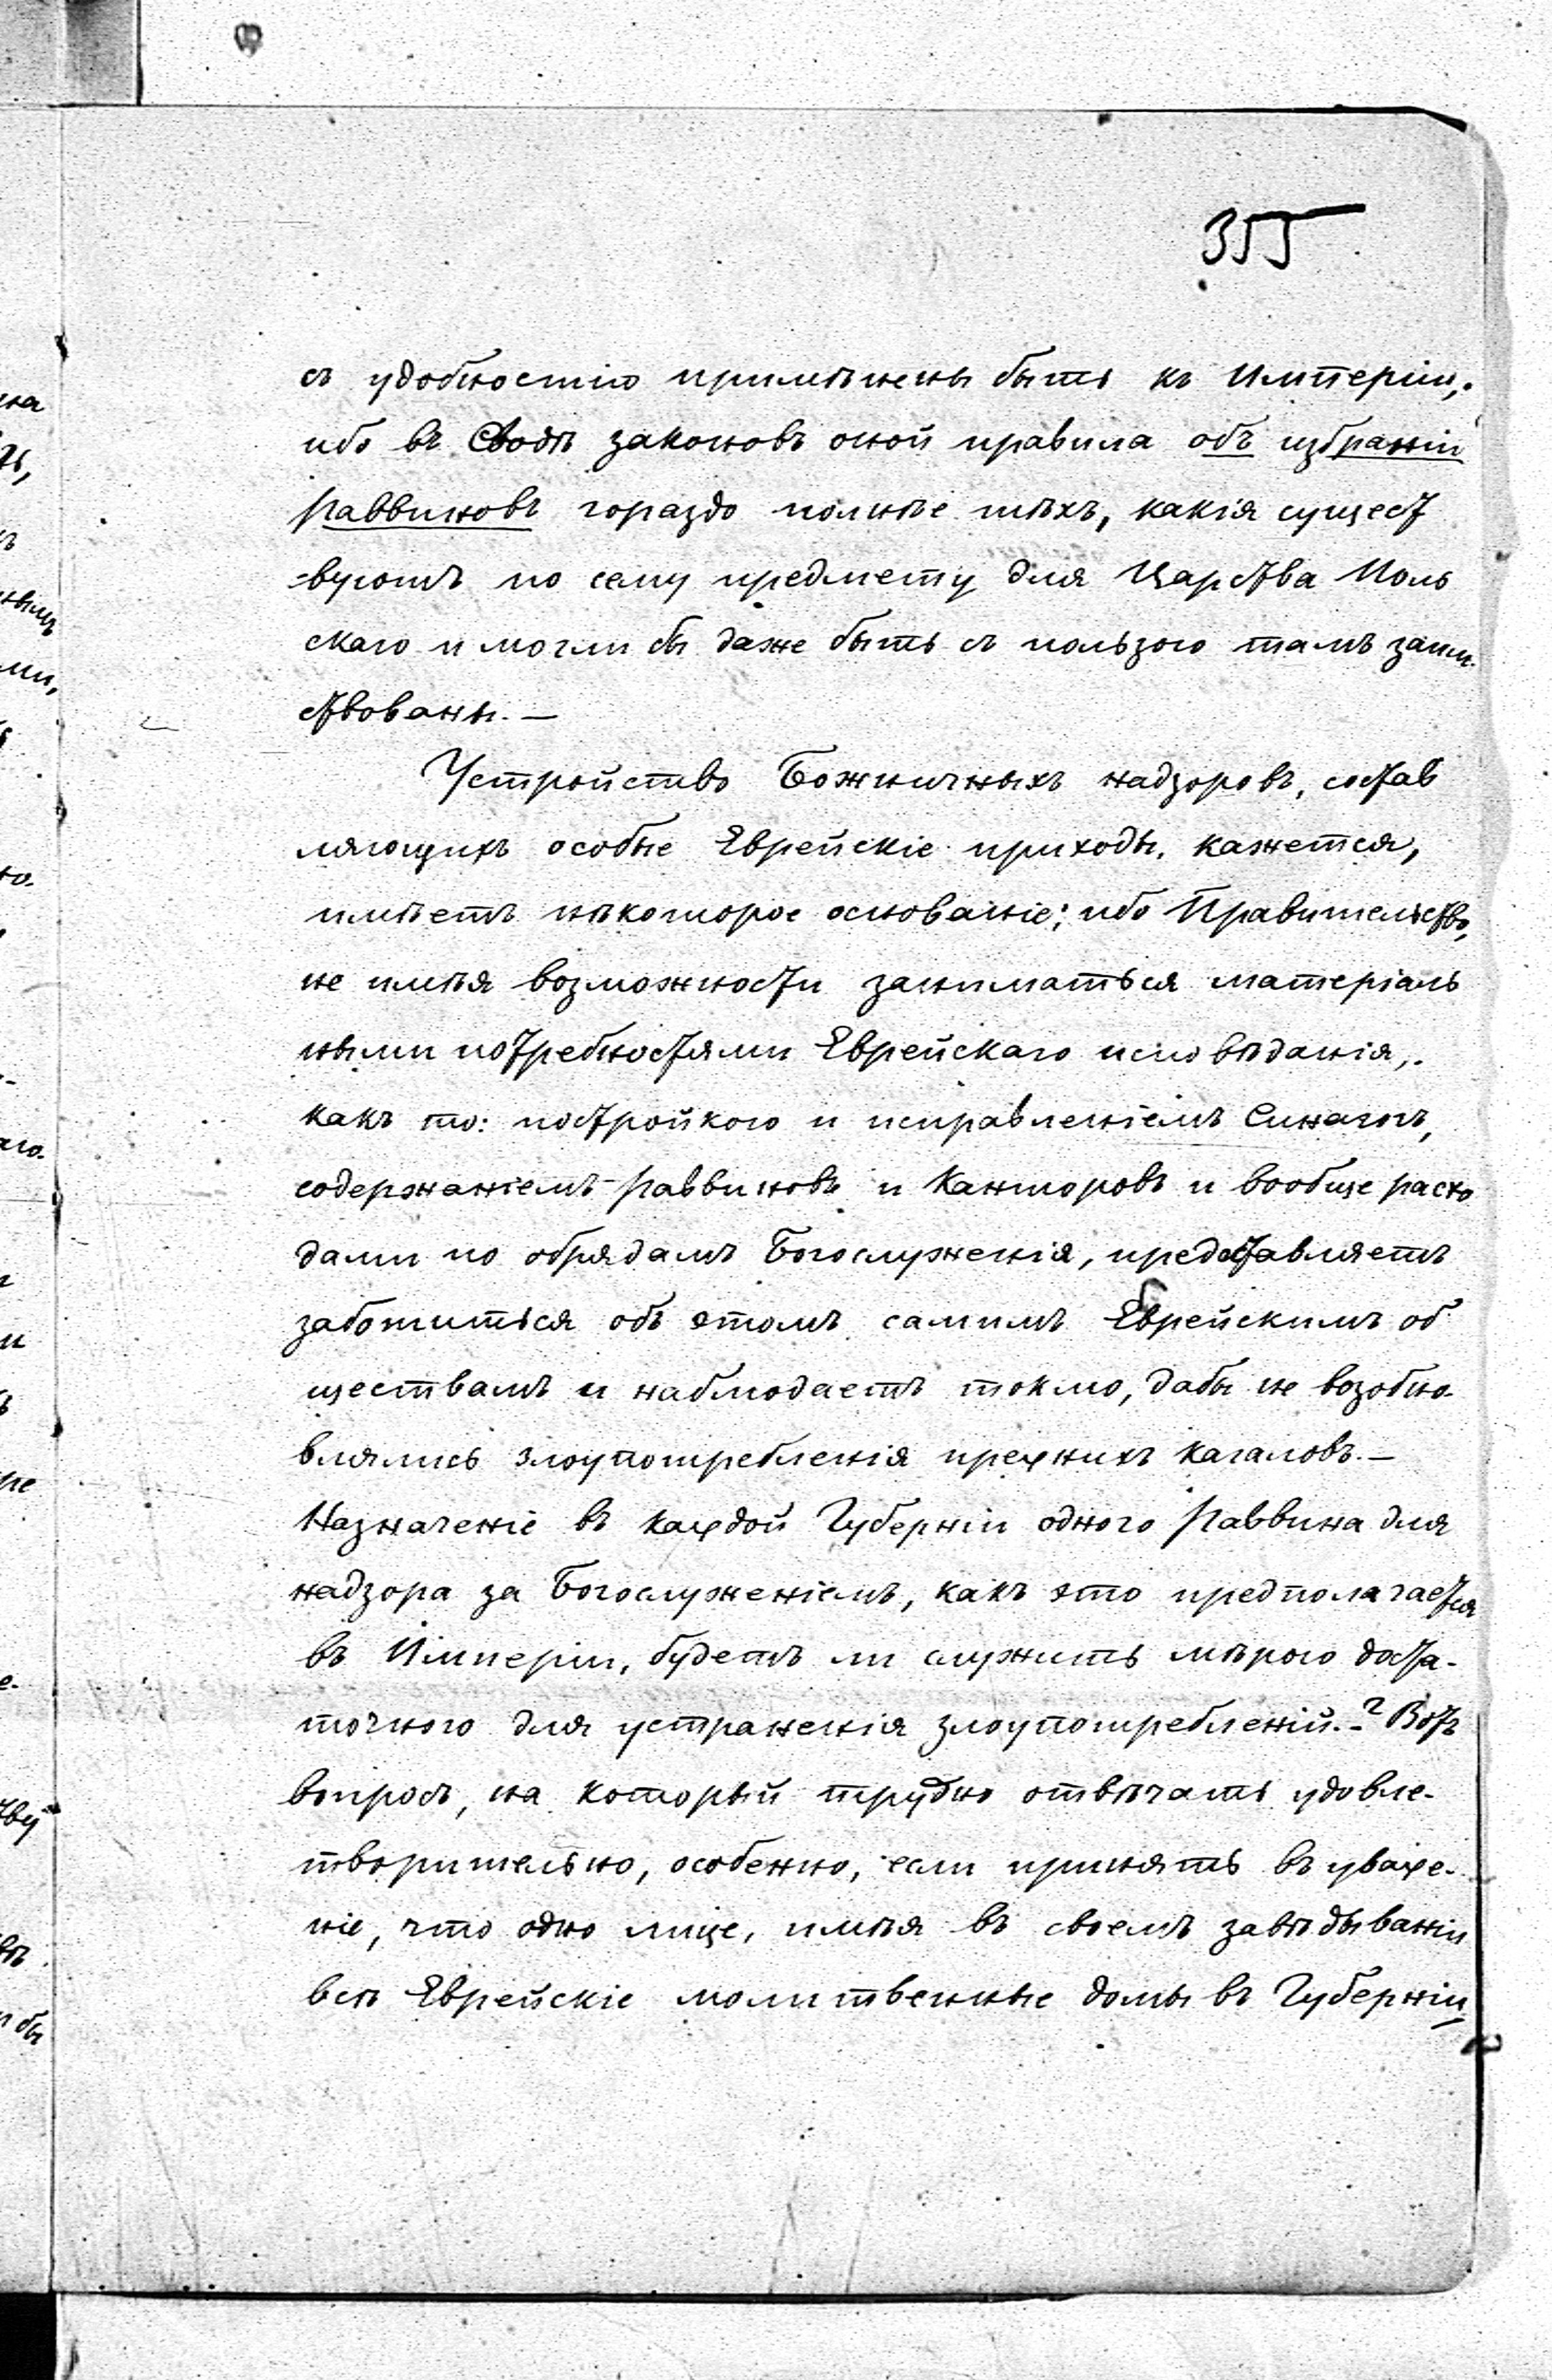 355
съ удобностію примѣнены быть къ Имперіи,
ибо въ Сводѣ законовъ оной правила объ избраніи
Раввиновъ гораздо полнѣе тѣхъ, какія сущест
-вуютъ по сему предмету для Царства Поль
скаго и могли бы даже быть съ пользою тамъ заим-
ствованы. —
Устройство Божничныхъ надзоровъ, состав
ляющихъ особые Еврейскіе приходы, кажется,
имѣетъ нѣкоторое основаніе; ибо Правительство,
не имѣя возможности заниматься матеріаль
ными потребностями Еврейскаго исповѣданія,
какъ то: постройкою и исправленіемъ Синагогъ,
содержаніемъ Раввиновъ и Канторовъ и вообще расхо
дами по обрядамъ Богослуженія, предоставляетъ
заботиться объ этомъ самимъ Еврейскимъ об
ществамъ и наблюдаетъ токмо, дабы не возобно-
влялись злоупотребленія прежнихъ кагаловъ. —
Назначеніе въ каждой Губерніи одного Раввина для
надзора за Богослуженіемъ, какъ это предполагается
въ Имперіи, будетъ ли служить мѣрою доста-
точною для устраненія злоупотребленій. -? Вотъ
вопросъ, на который трудно отвѣчать удовле-
творительно, особенно, если принять въ уваже-
ніе, что одно лице, имѣя въ своемъ завѣдываніи
всѣ Еврейскіе молитвенные домы въ Губерніи